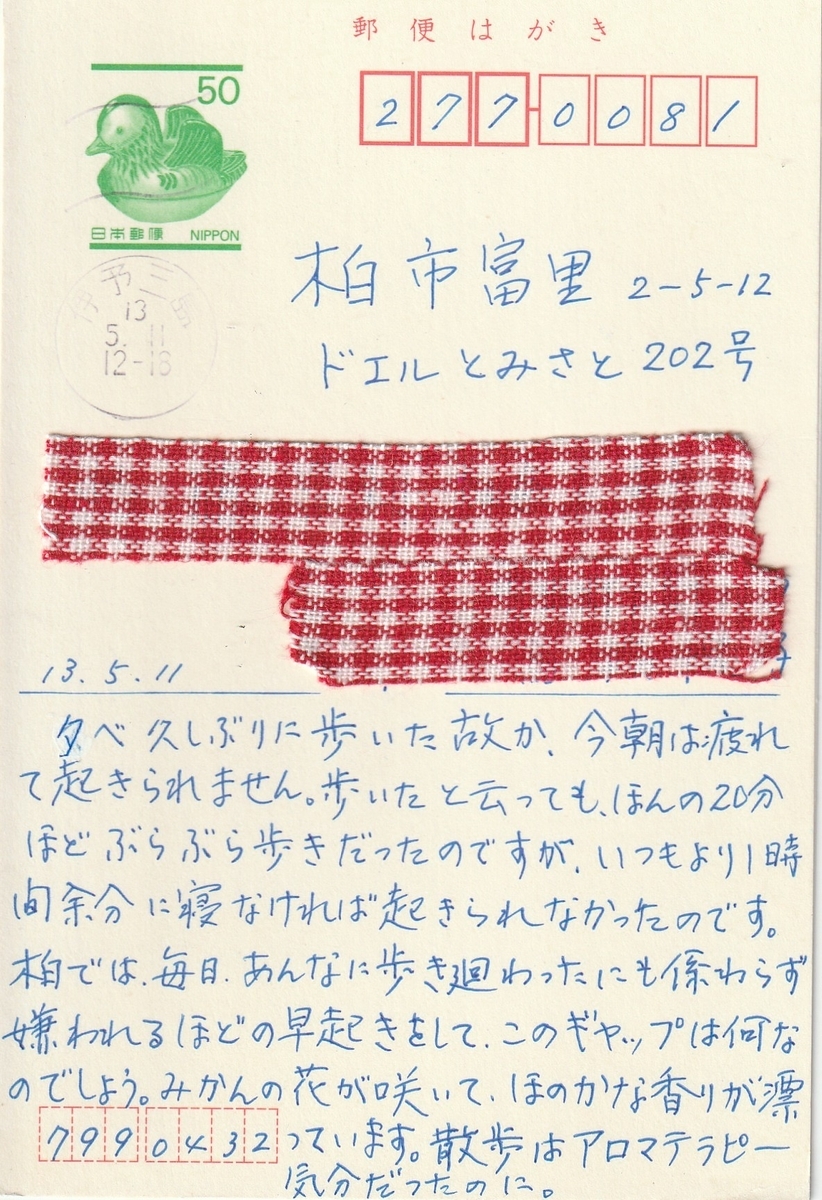 郵便はがき
50
日本郵便 NIPPON
277-0081
伊予三島
13
5. 11
12-18
柏市富里 2-5-12
ドエルとみさと 202号
13.5.11
夕べ久しぶりに歩いた故か、今朝は疲れ
て起きられません。歩いたと云っても、ほんの20分
ほどぶらぶら歩きだったのですが、いつもより1時
間余分に寝なければ起きられなかったのです。
柏では、毎日、あんなに歩き廻わったにも係わらず
嫌われるほどの早起きをして、このギャップは何な
のでしょう。みかんの花が咲いて、ほのかな香りが漂
っています。散歩はアロマテラピー
気分だったのに。
7990432